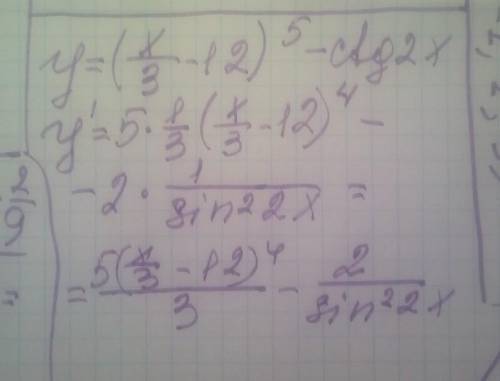 y = (x/3 - 12)^5 - ctg2x
y' = 5 · 1/3 (x/3 - 12)^4 -
- 2 · 1/sin²2x =
= 5(x/3 - 12)^4/3 - 2/sin²2x